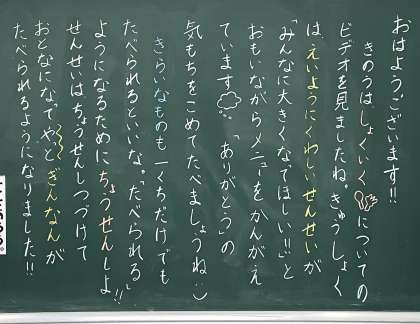 おはようございます!!
きのうはしょくいくについての
ビデオを見ましたね。きゅうしょく
は、えいようにくわしいせんせいが
「みんなに大きくなってほしい!!」と
おもいながらメニューをかんがえ
ています。「ありがとう」の
気もちをこめてたべましょうね
きらいなものも一くちだけでも
たべられるといいな。「たべられる」
ようになるためにちょうせんしよ!!
せんせいはちょうせんしつづけて
おとなになってやっとぎんなんが
たべられるようになりました!!